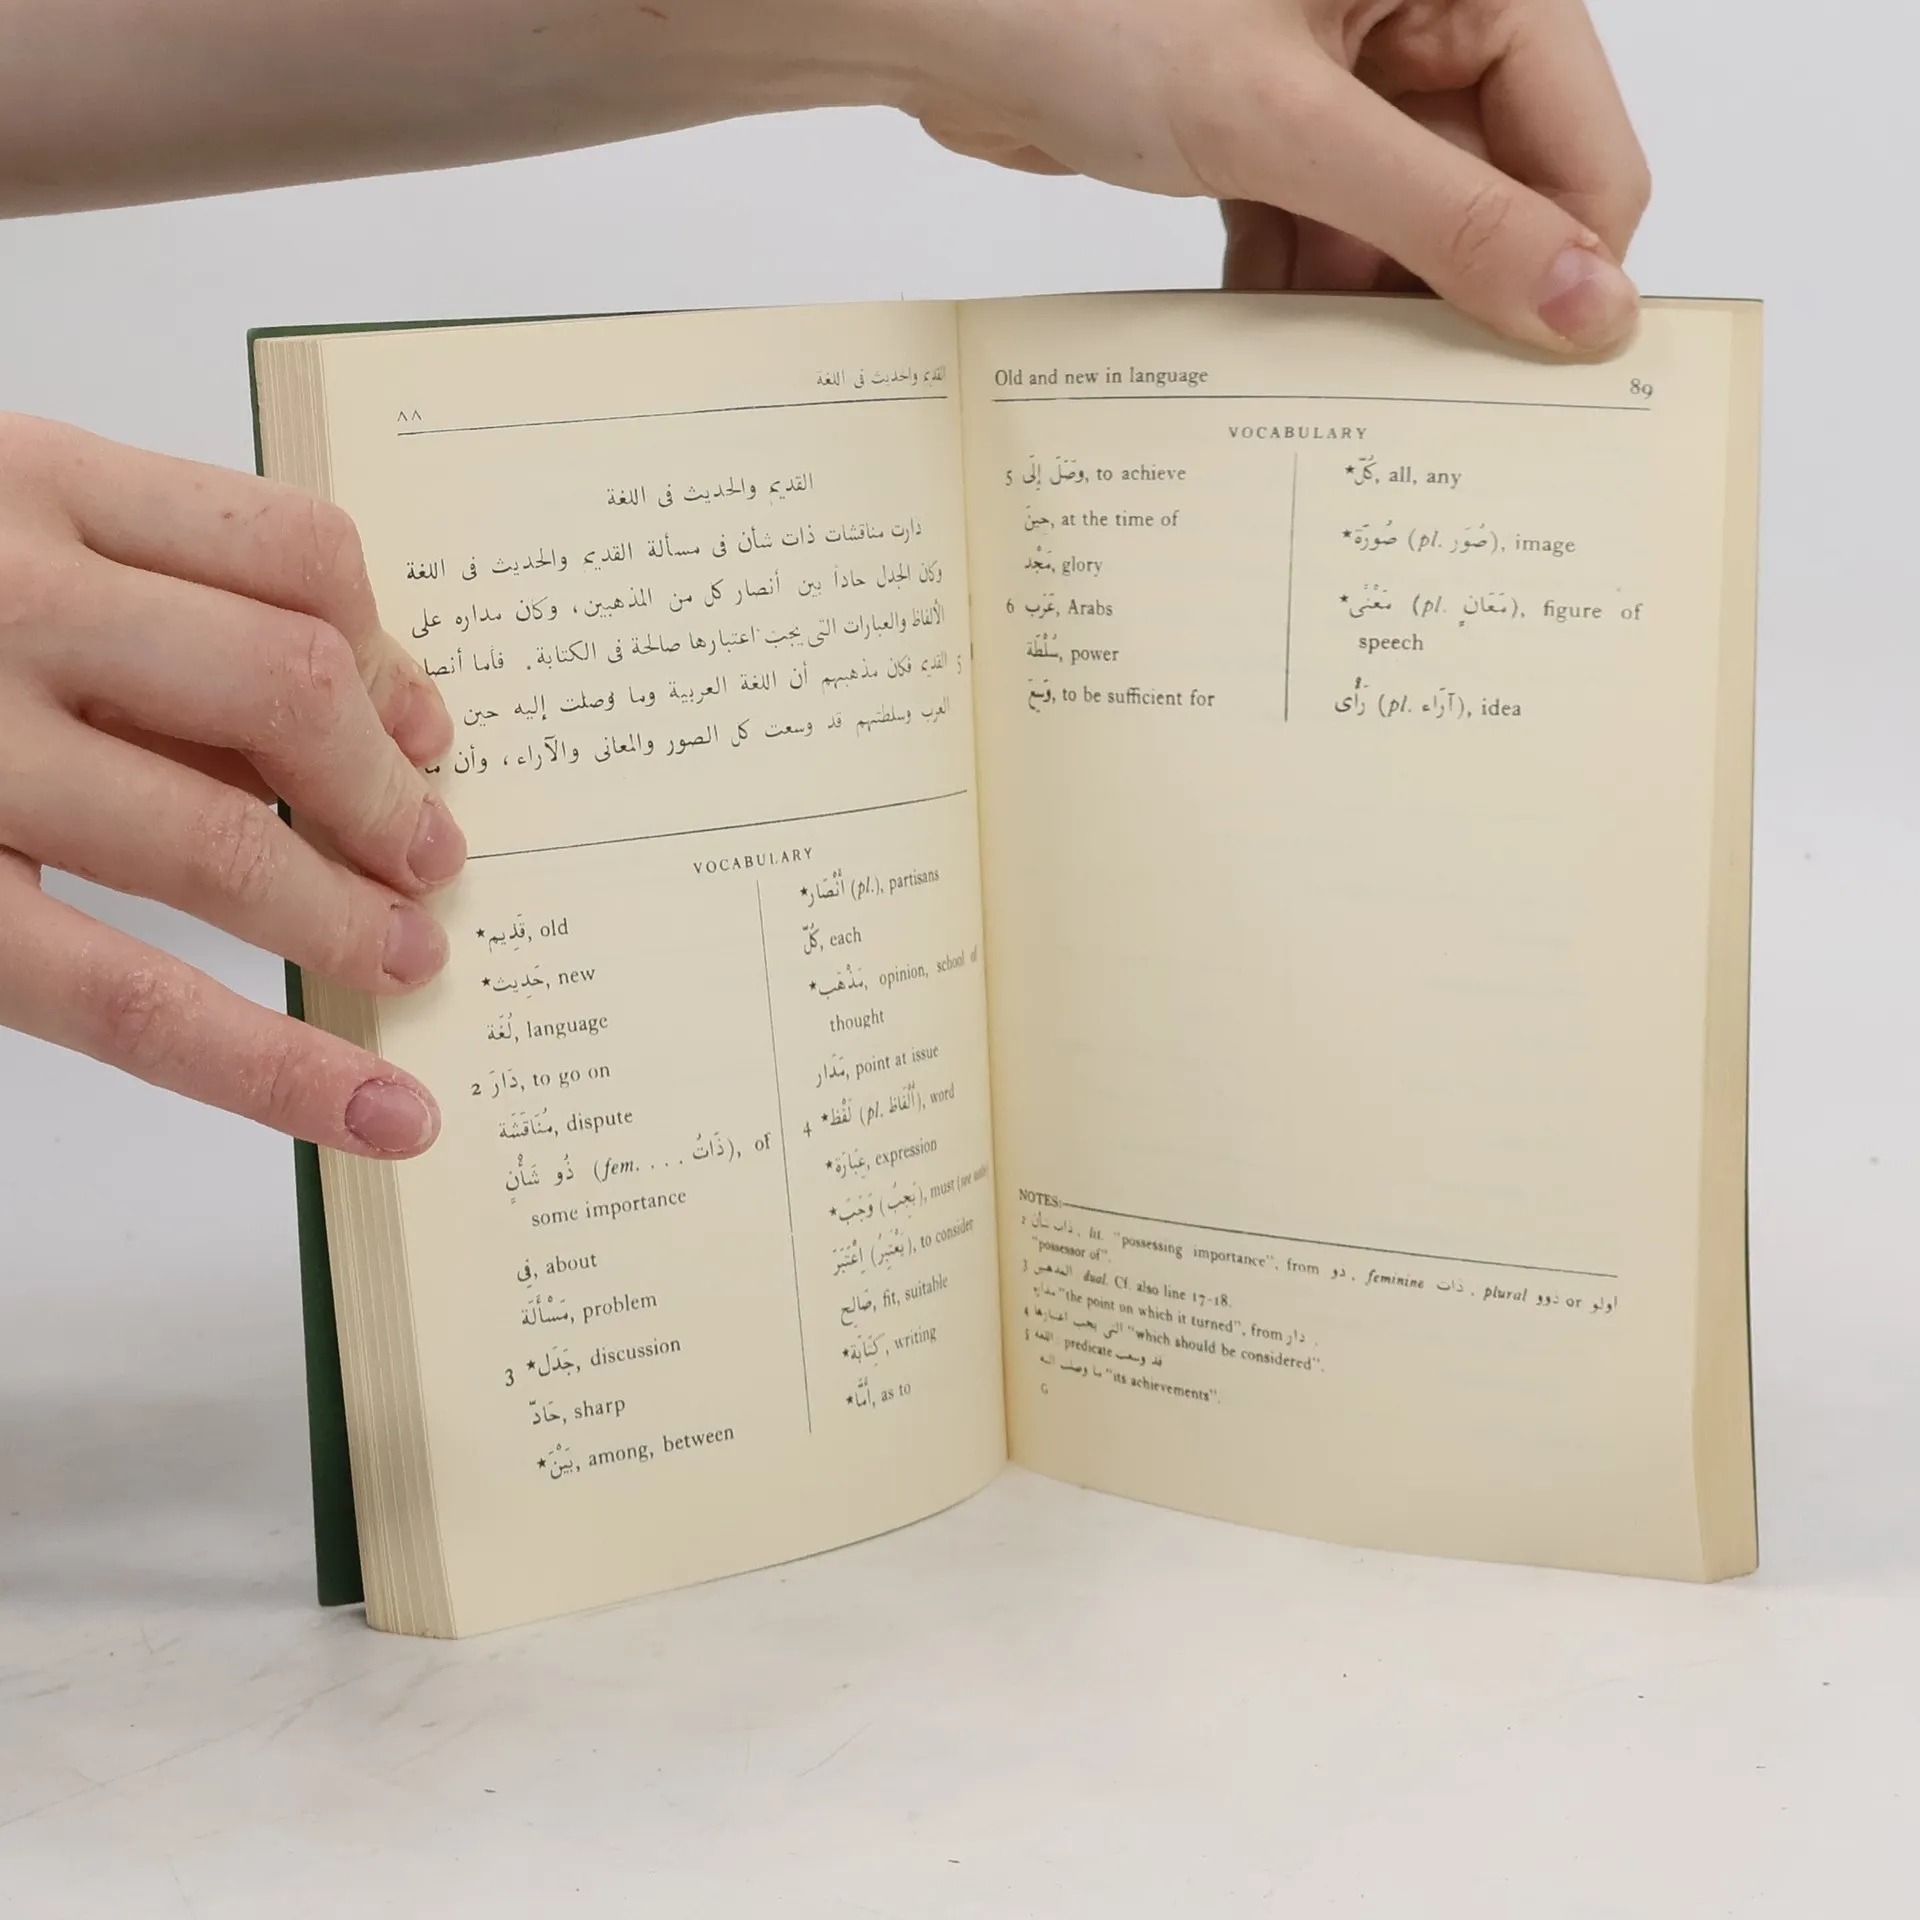 القديم والحديث فى اللغة
٨٨
القديم والحديث فى اللغة
دارت مناقشات ذات شأن فى مسألة القديم والحديث فى اللغة
وكان الجدل حاداً بين أنصار كل من المذهبين، وكان مداره على
الألفاظ والعبارات التى يجب اعتبارها صالحة فى الكتابة. فأما أنصا
5 القديم فكان مذهبهم أن اللغة العربية وما وصلت إليه حين
العرب وسلطتهم قد وسعت كل الصور والمعانى والآراء، وأن
VOCABULARY
*قَدِيم, old
*حَدِيث, new
لُغَة, language
2 دَارَ, to go on
مُنَاقَشَة, dispute
ذُو شَأْنٍ (fem. . . . ذَاتُ), of
some importance
فِي, about
مَسْأَلَة, problem
3 *جَدَل, discussion
حَادّ, sharp
*بَيْنَ, among, between
*أَنْصَار (pl.), partisans
كُلّ, each
*مَذْهَب, opinion, school of
thought
مَدَار, point at issue
4 *لَفْظ (pl. أَلْفَاظ), word
*عِبَارَة, expression
*وَجَبَ (يَجِبُ), must (see
اِعْتَبَرَ (يَعْتَبِرُ), to consider
صَالِح, fit, suitable
*كِتَابَة, writing
*أَمَّا, as to
Old and new in language
89
VOCABULARY
5 وَصَلَ إِلَى, to achieve
حِينَ, at the time of
مَجْد, glory
6 عَرَب, Arabs
سُلْطَة, power
وَسِعَ, to be sufficient for
*كُلّ, all, any
*صُورَة (pl. صُوَر), image
*مَعْنًى (pl. مَعَانٍ), figure of
speech
رَأْى (pl. آرَاء), idea
NOTES:
2 ذات شأن, lit. "possessing importance", from ذو, feminine ذات, plural ذوو or اولو
"possessor of".
3 المذهبين dual. Cf. also line 17-18.
مداره "the point on which it turned", from دار.
4 التى يجب اعتبارها "which should be considered".
5 اللغة: predicate قد وسعت
ما وصلت اليه "its achievements".
G